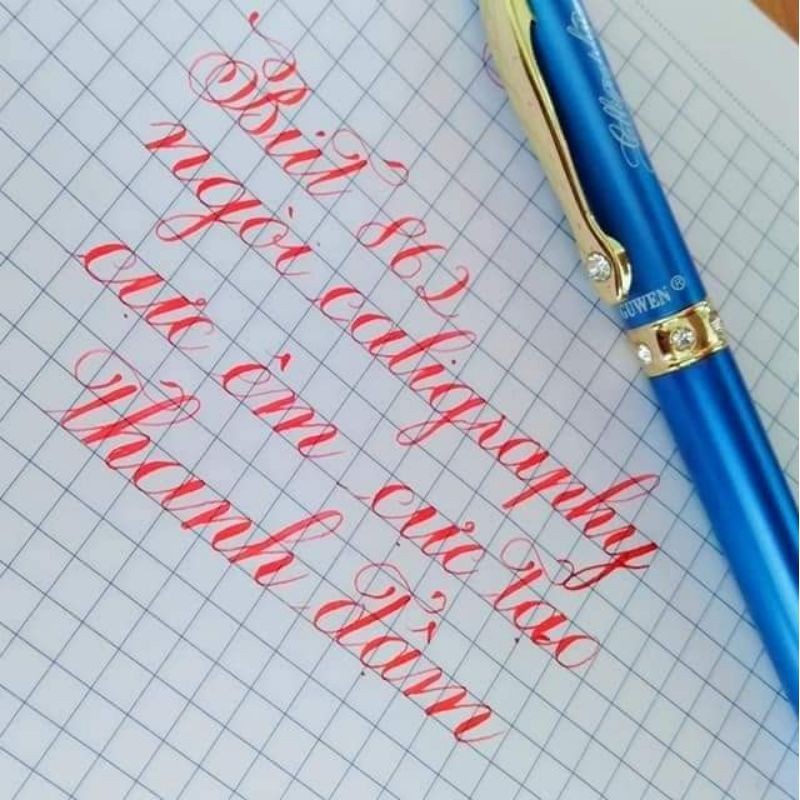 Bút 862
ngòi caligraphy
cực êm cực tao
Thanh đậm
GUWEN®